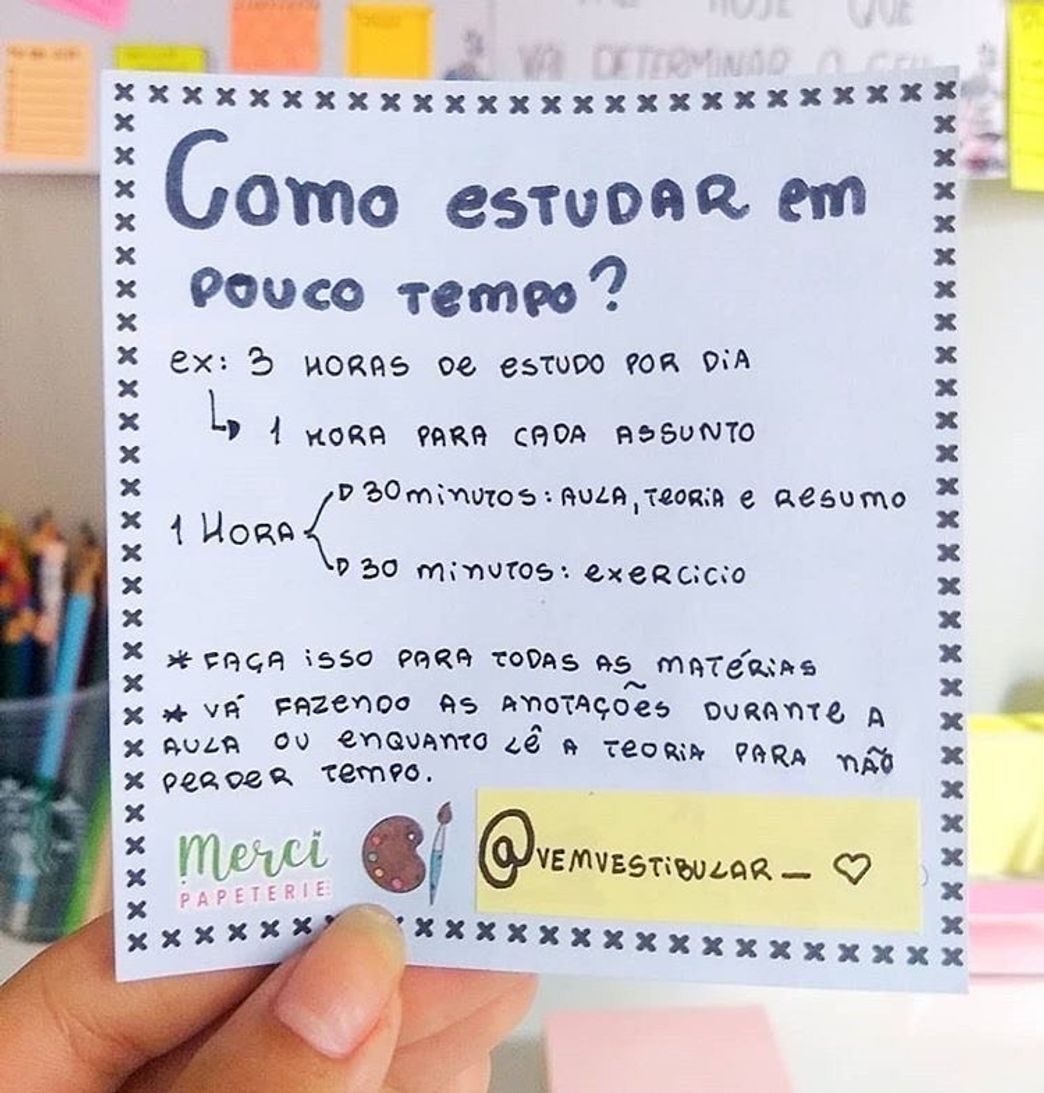 HOJE QUE
VAI DETERMINAR O SEU
Como ESTUDAR em
POUCO Tempo?
ex: 3 HORAS De eSTUDO POR DiA
1 HORA PARA CADA ASSUNTO
30 minutos: AULA, TEORiA e Resumo
1 HORA
30 minutos: exeRcicio
* FAÇA iSSO PARA TODAS AS MATÉRiAS
* VÁ FAZENDO AS ANOTAÇÕES DURANTE A
AULA OU enQUANTO LÊ A TEORiA PARA NÃO
PERDER TEMPO.
Merci
PAPETERIE
@VEMVESTiBULAR_ ♡